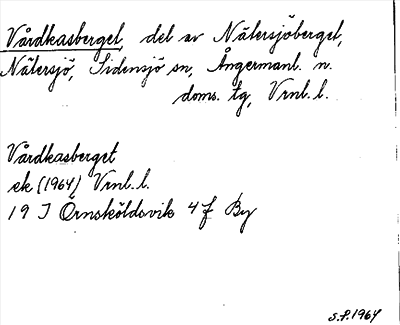 Vårdkasberget, del av Nätersjöberget,
Nätersjö, Sidensjö sn, Ångermanl. n.
doms. tg, Vrnl. l.
Vårdkasberget
ek (1964) Vrnl. l.
19 I Örnsköldsvik 4 f By
S.F. 1964